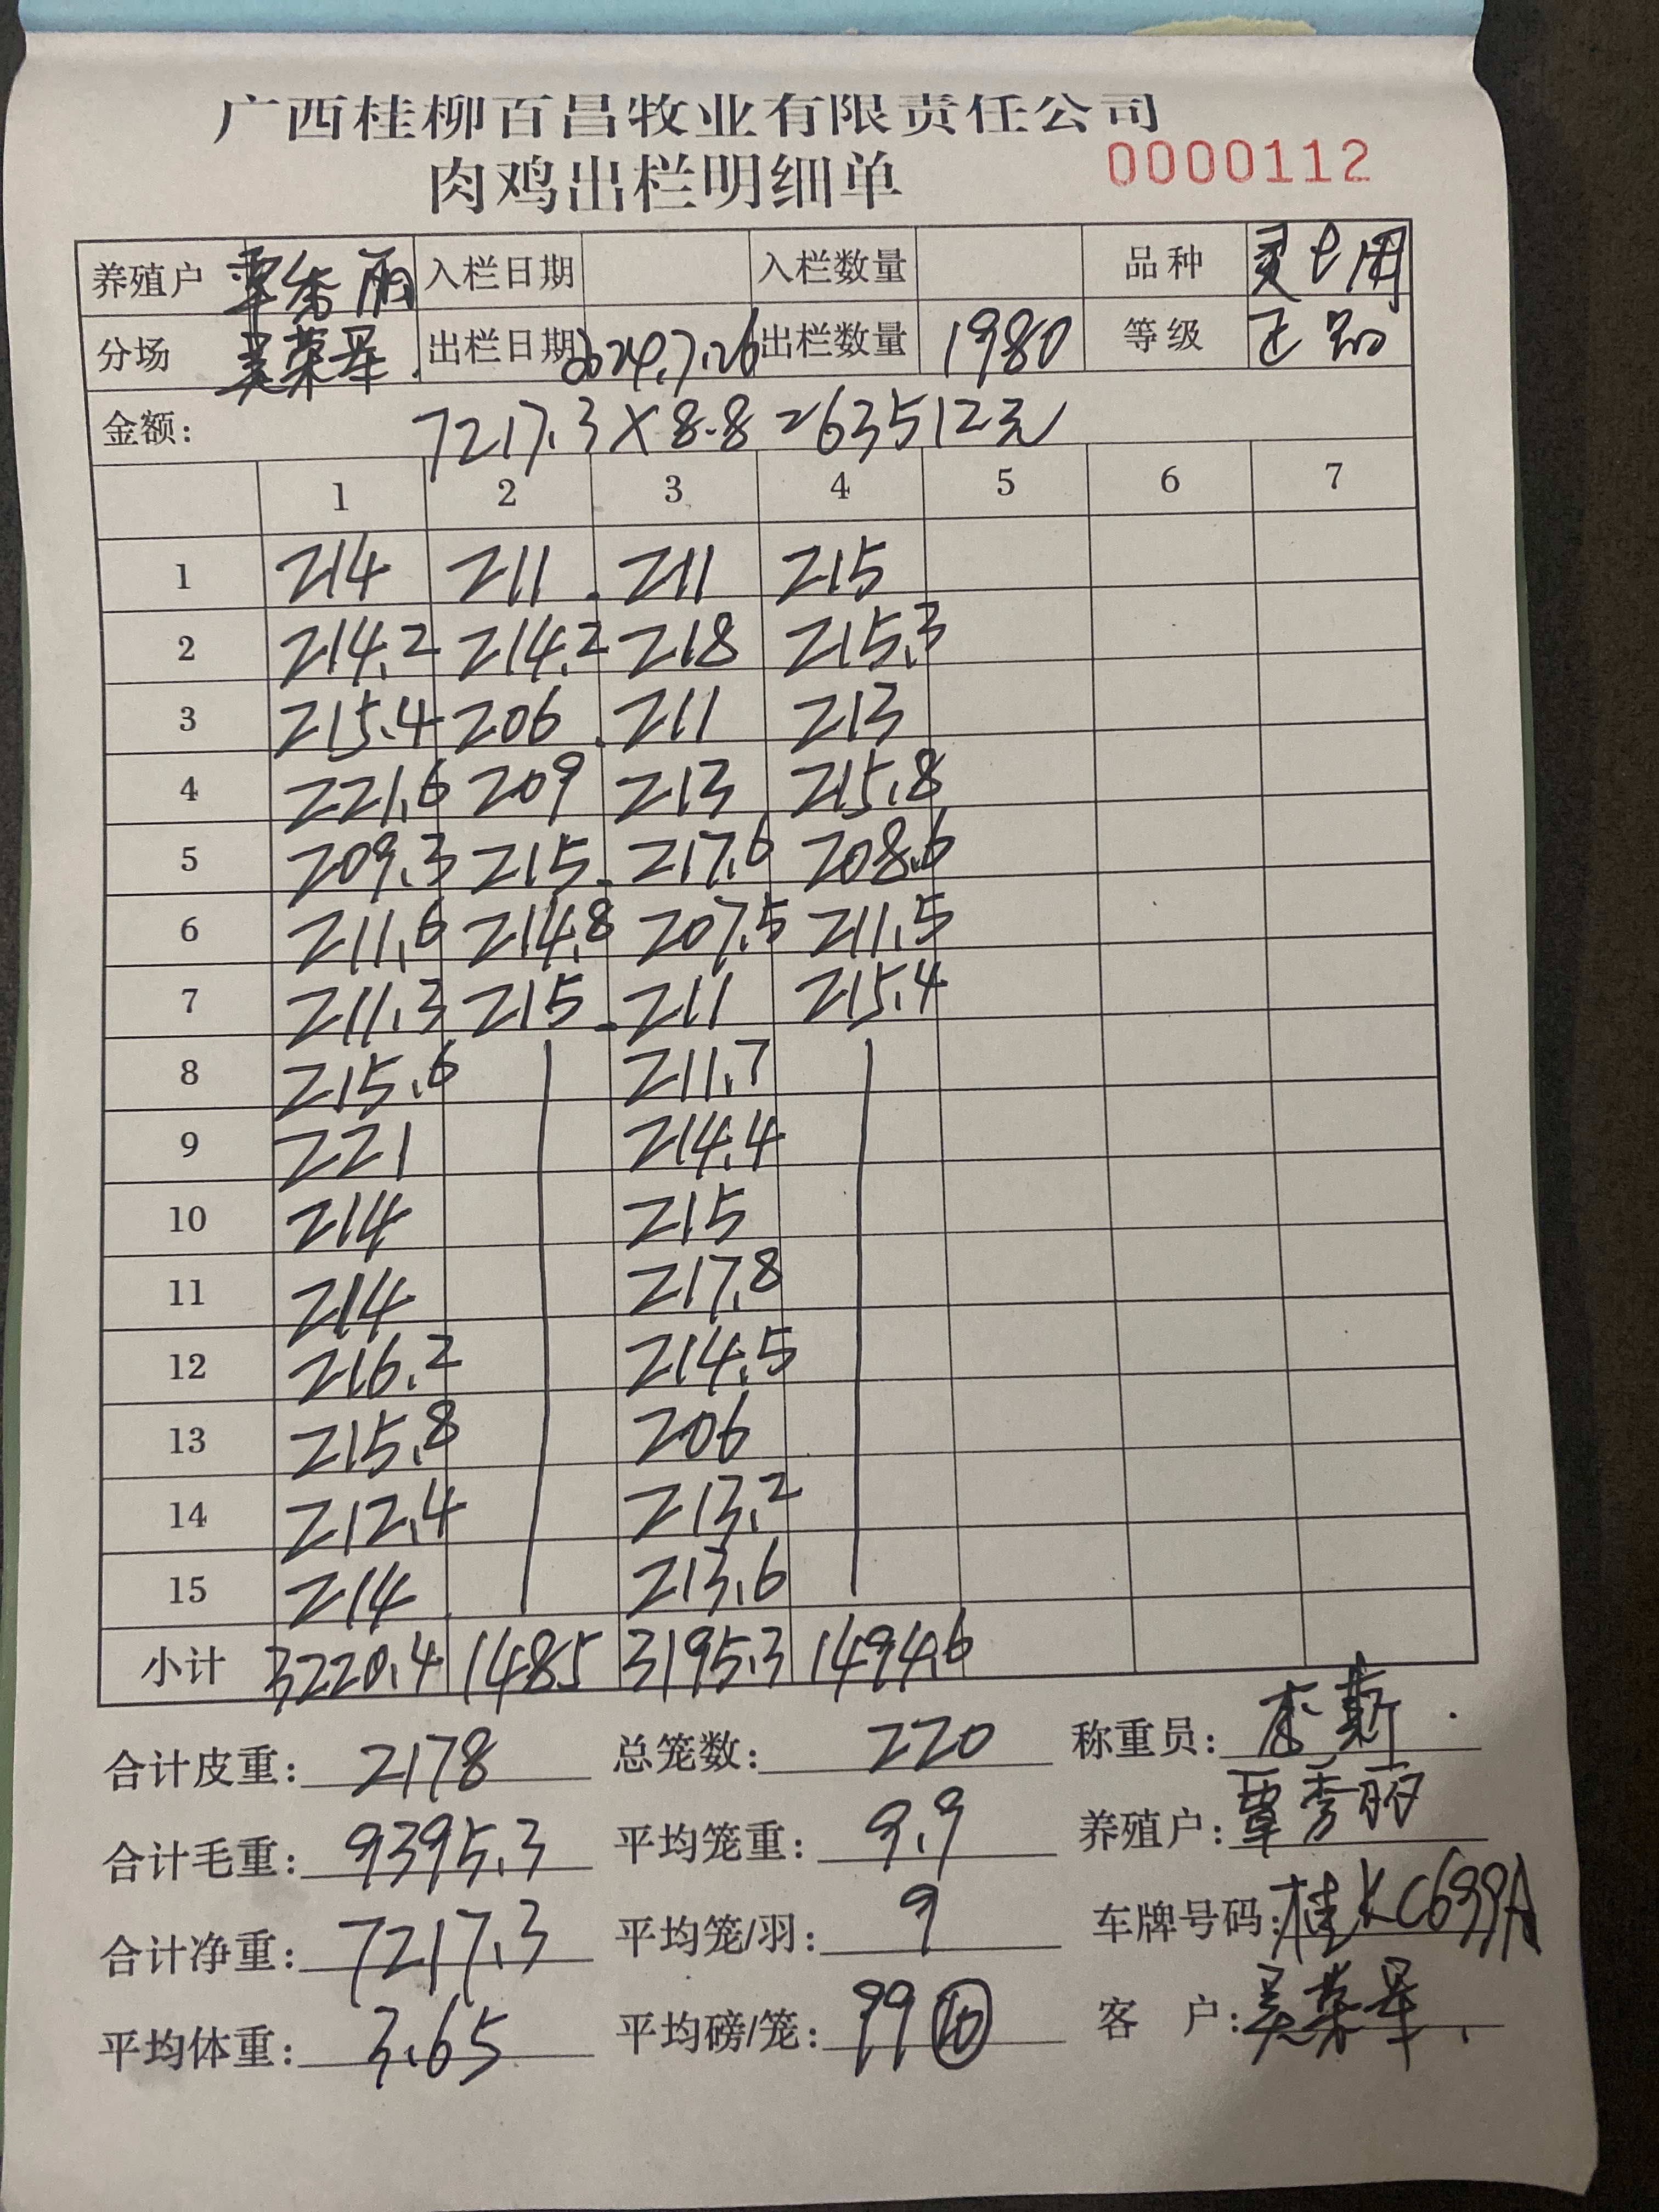 广西桂柳百昌牧业有限责任公司
肉鸡出栏明细单 0000112
养殖户 覃秀丽 入栏日期 入栏数量 品种 灵七用
分场 吴荣昇 出栏日期 2024.7.26 出栏数量 1980 等级 正品
金额: 7217.3×8.8=63512元
1 2 3 4 5 6 7
1 214 211 211 215
2 214.2 214.2 218 215.3
3 215.4 206 211 213
4 221.6 209 213 215.8
5 209.3 215 217.6 208.6
6 211.6 214.8 207.5 211.5
7 211.3 215 211 215.4
8 215.6 211.7
9 221 214.4
10 214 215
11 214 217.8
12 216.2 214.5
13 215.8 206
14 212.4 213.2
15 214 213.6
小计 3220.4 1485 3195.3 1494.6
合计皮重: 2178 总笼数: 220 称重员:
合计毛重: 9395.3 平均笼重: 9.9 养殖户: 覃秀丽
合计净重: 7217.3 平均笼/羽: 9 车牌号码: 桂KC699A
平均体重: 3.65 平均磅/笼: 99 10 客户: 吴荣昇